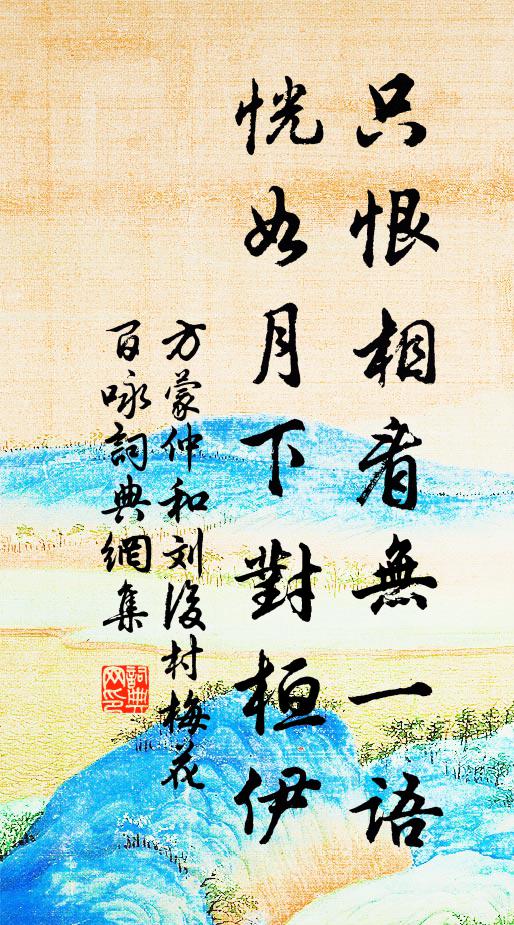 只恨相看無一語
恍如月下對桓伊
方蒙仲和刘後村梅花
百咏詞典網集
詞典网印